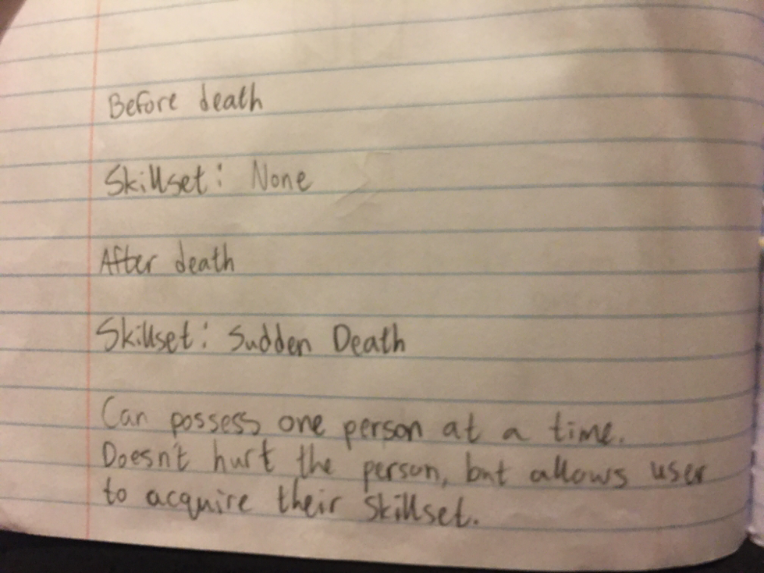 Before death
Skillset: None
After death
Skillset: Sudden Death
Can possess one person at a time.
Doesn't hurt the person, but allows user
to acquire their skillset.